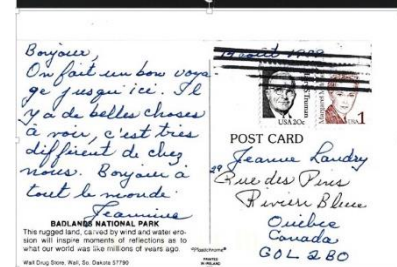 Bonjour,
On fait un bon voya-
ge jusqu'ici. Il
y a de belles choses
à voir, c'est très
différent de chez
nous. Bonjour à
tout le monde
Jeannine
BADLANDS NATIONAL PARK
This rugged land, carved by wind and water ero-
sion will inspire moments of reflections as to
what our world was like millions of years ago.
Wall Drug Store, Wall, So. Dakota 57790
"Plastichrome"
PRINTED
IN IRELAND
août
Truman
USA 20c
Margaret
1
POST CARD
Jeanne Landry
29 Rue des Pins
Rivière Bleue
Québec
Canada
G0L 2B0